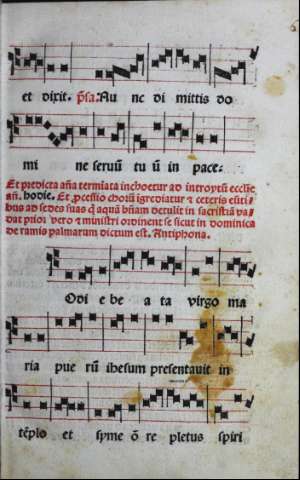 et dixit. p̄sa: Nu nc di mittis do
mi ne seruū tu ū in pace:
Et predicta aña termīata inchoetur ad introytū ecclīe
añ. hodie. Et ꝓcessio chorū īgrediatur ⁊ ceteris
ad sedes suas q̄ aquā bñam detulit in sacristiā va
dat prior vero ⁊ ministri ordinent se sicut in dominica
de ramis palmarum dictum est. Antiphona.
Odi e be a ta virgo ma
ria pue rū ihesum presentauit in
tēplo et syme ō re pletus spiri